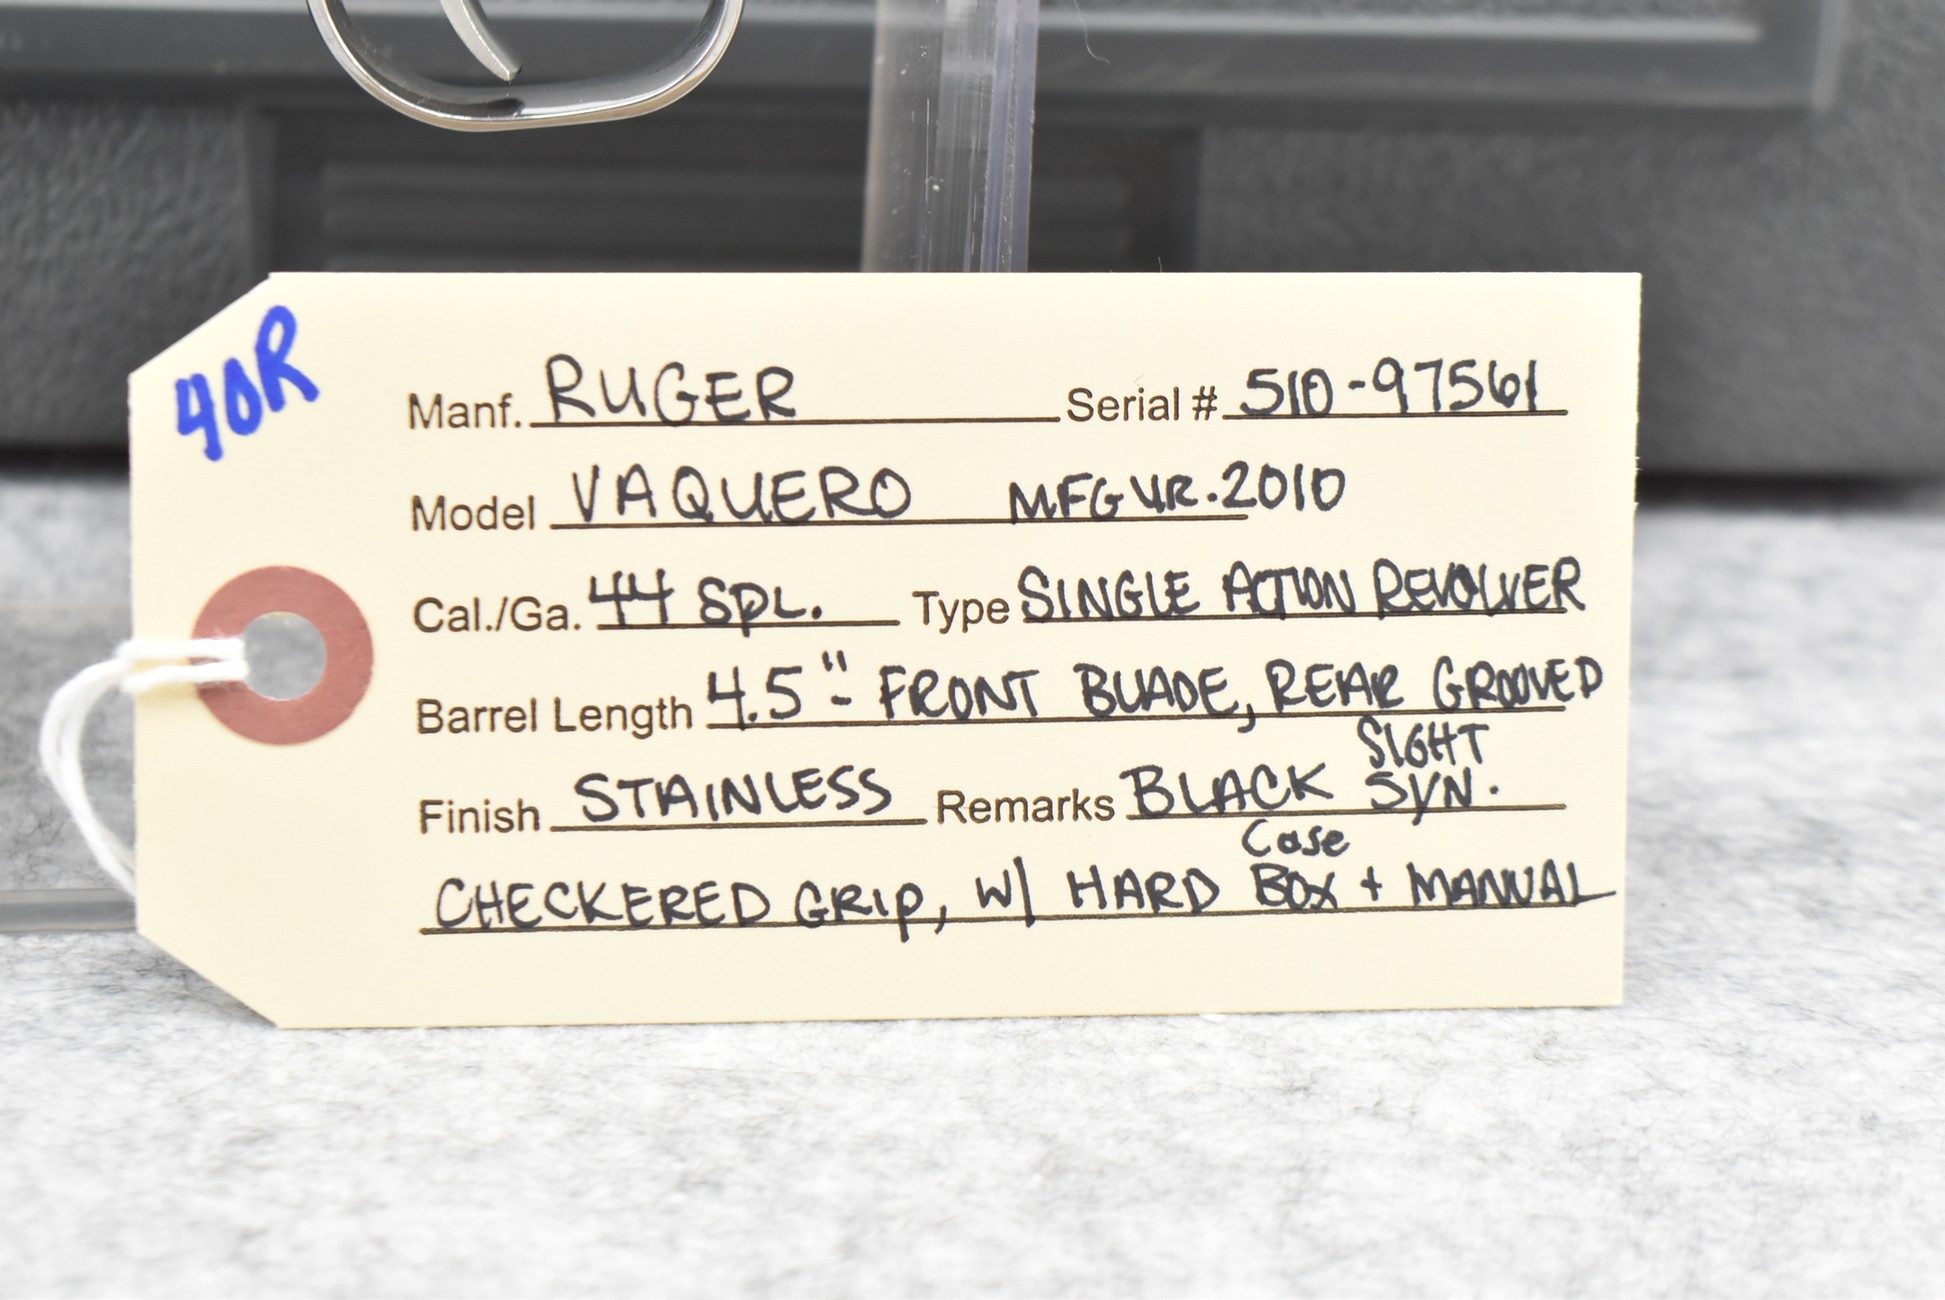 40R
Manf. RUGER Serial # 510-97561
Model VAQUERO MFG YR. 2010
Cal./Ga. 44 SPL. Type SINGLE ACTION REVOLVER
Barrel Length 4.5" - FRONT BLADE, REAR GROOVED
SIGHT
Finish STAINLESS Remarks BLACK SYN.
Case
CHECKERED GRIP, W/ HARD BOX + MANUAL